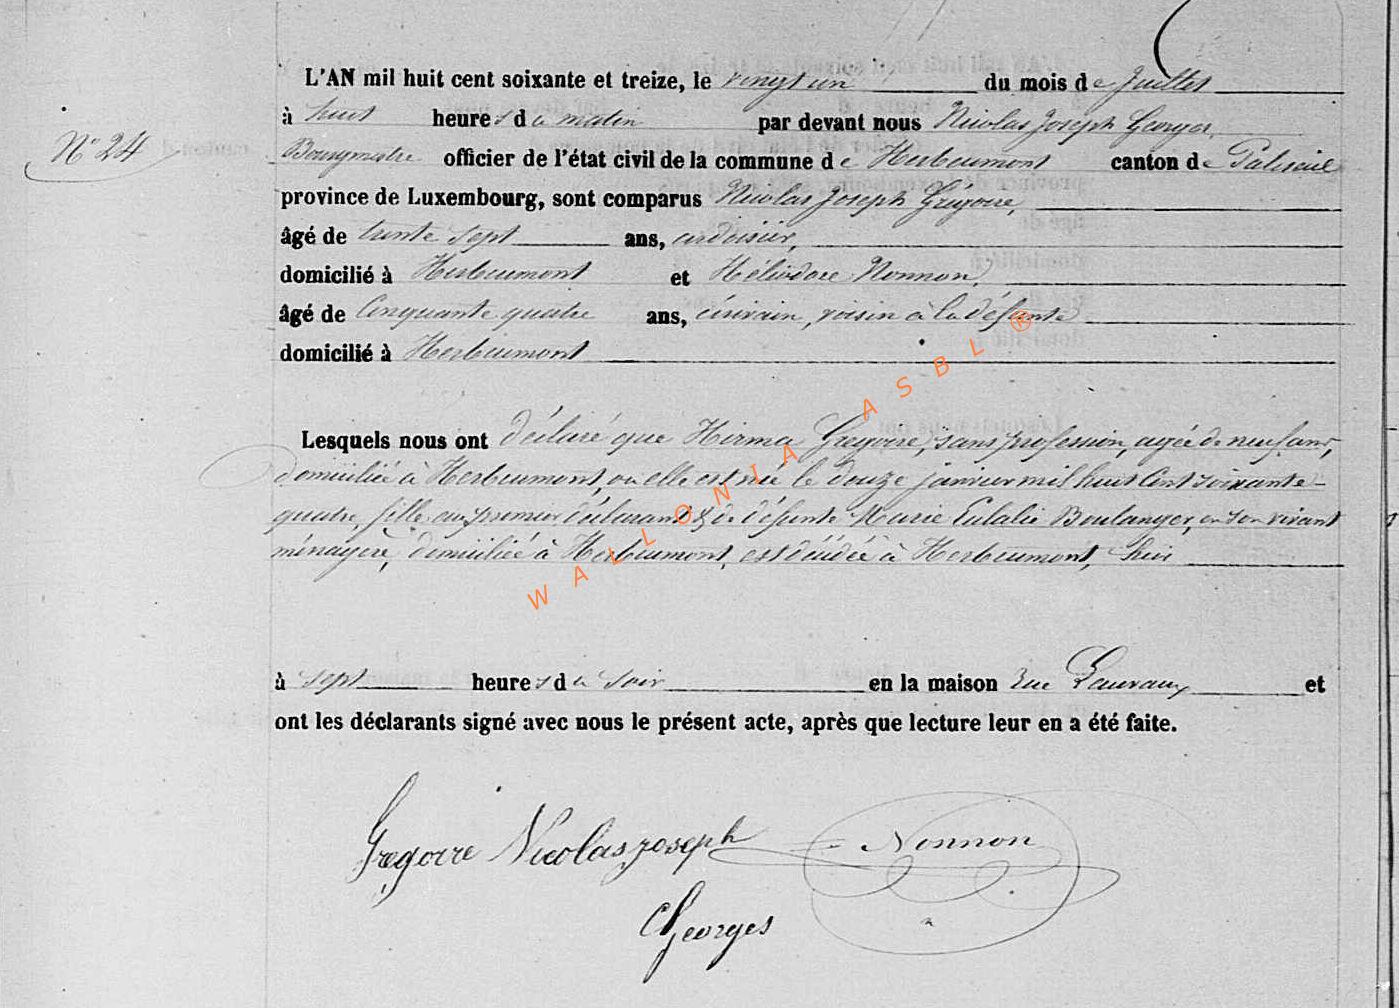 L'AN mil huit cent soixante et treize, le vingt un du mois de Juillet
à huit heures du matin par devant nous Nicolas Joseph Georges,
N° 24
Bourgmestre officier de l'état civil de la commune de Herbeumont canton de Paliseul
province de Luxembourg, sont comparus Nicolas Joseph Grégoire,
âgé de trente sept ans, ardoisier,
domicilié à Herbeumont et Héliodore Nonnon,
âgé de Cinquante quatre ans, écrivain, voisin à la défunte
domicilié à Herbeumont
Lesquels nous ont déclaré que Hirma Grégoire, sans profession, agée de neuf ans,
domiciliée à Herbeumont, ou elle est née le douze janvier mil huit Cent soixante-
quatre, fille au premier déclarant & de défunte Marie Eulalie Boulanger, en son vivant
ménagère, domiciliée à Herbeumont, est décédée à Herbeumont, hier
à sept heures du soir en la maison rue Lauvaux et
ont les déclarants signé avec nous le présent acte, après que lecture leur en a été faite.
Gregoire Nicolas joseph Nonnon
Georges
WALLONIA ASBL ®